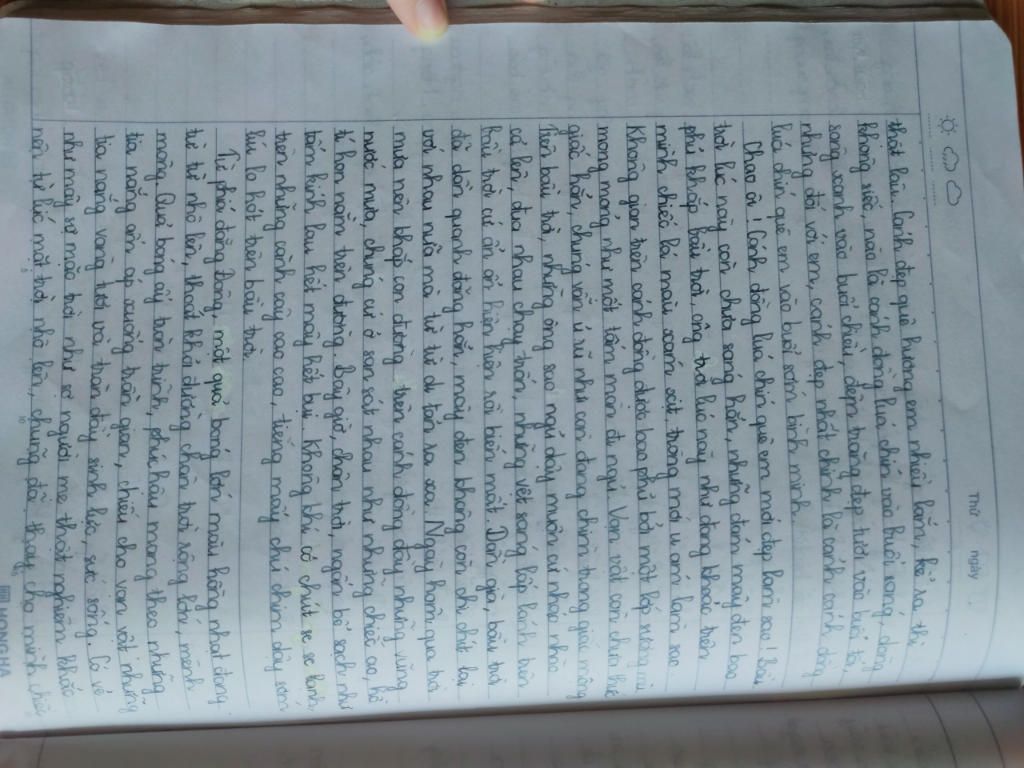 Thứ ngày
thật lâu. Cảnh đẹp quê hương em nhiều lắm, kể ra thì
không xiết, nào là cánh đồng lúa chín vào buổi sáng, dòng
sông xanh vào buổi chiều, đêm trăng đẹp tươi vào buổi tối,
nhưng đối với em, cảnh đẹp nhất chính là cánh cánh đồng
luá chín quê em vào buổi sớm bình minh.
Chao ôi! Cánh đồng luá chín quê em mới đẹp làm sao! Bầu
trời lúc này còn chưa sáng hẳn, những đám mây đen bao
phủ khắp bầu trời, ông trời lúc này như đang khoác trên
mình chiếc áo màu xám xịt, trông mới u ám làm sao.
Không gian trên cánh đồng được bao phủ bởi một lớp sương mù
mong mỏng như một tấm màn đi ngủ. Vạn vật còn chưa thức
giấc hẳn, chúng vẫn ủ rũ như còn đang chìm trong giấc mộng.
Trên bầu trời, những ông sao ngủ dậy muộn cứ nhấp nháy
cả lên, đua nhau chạy trốn, những vệt sáng lấp lánh trên
bầu trời cứ ẩn ẩn hiện hiện rồi biến mất. Dần già, bầu trời
đã dần quang đãng hơn, mây đen không còn chi chít lại
với nhau nữa mà từ từ di tản ra xa. Ngày hôm qua trời
mưa nên khắp con đường trên cánh đồng đầy những vũng
nước mưa, chúng cứ ở san sát nhau như những chiếc ao, hồ
tí hon nằm trên đường. Bây giờ, chân trời, ngấn bể sạch như
tấm kính lau hết mây hết bụi. Không khí có chút se se lạnh,
trên những cành cây cao, tiếng mấy chú chim dậy sớm
líu lo hót trên bầu trời.
Từ phía đằng Đông, một quả bóng lớn màu hồng nhạt đang
từ từ nhô lên, thoát khỏi đường chân trời rộng lớn, mênh
mông. Quả bóng ấy tròn trĩnh, phúc hậu mang theo những
tia nắng ấm áp xuống trần gian, chiếu cho vạn vật những
tia nắng vàng tươi và tràn đầy sinh lực, sức sống. Có vẻ
như mây sợ mặt trời như sợ người mẹ thật nghiêm khắc
nên từ lúc mặt trời nhô lên, chúng đã thay cho mình chiếc
HONG HA